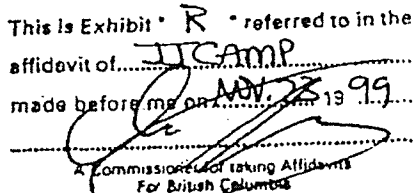 This is Exhibit " R " referred to in the
affidavit of JJCAMP
made before me on NOV. 23 19 99
A Commissioner for taking Affidavits
For British Columbia